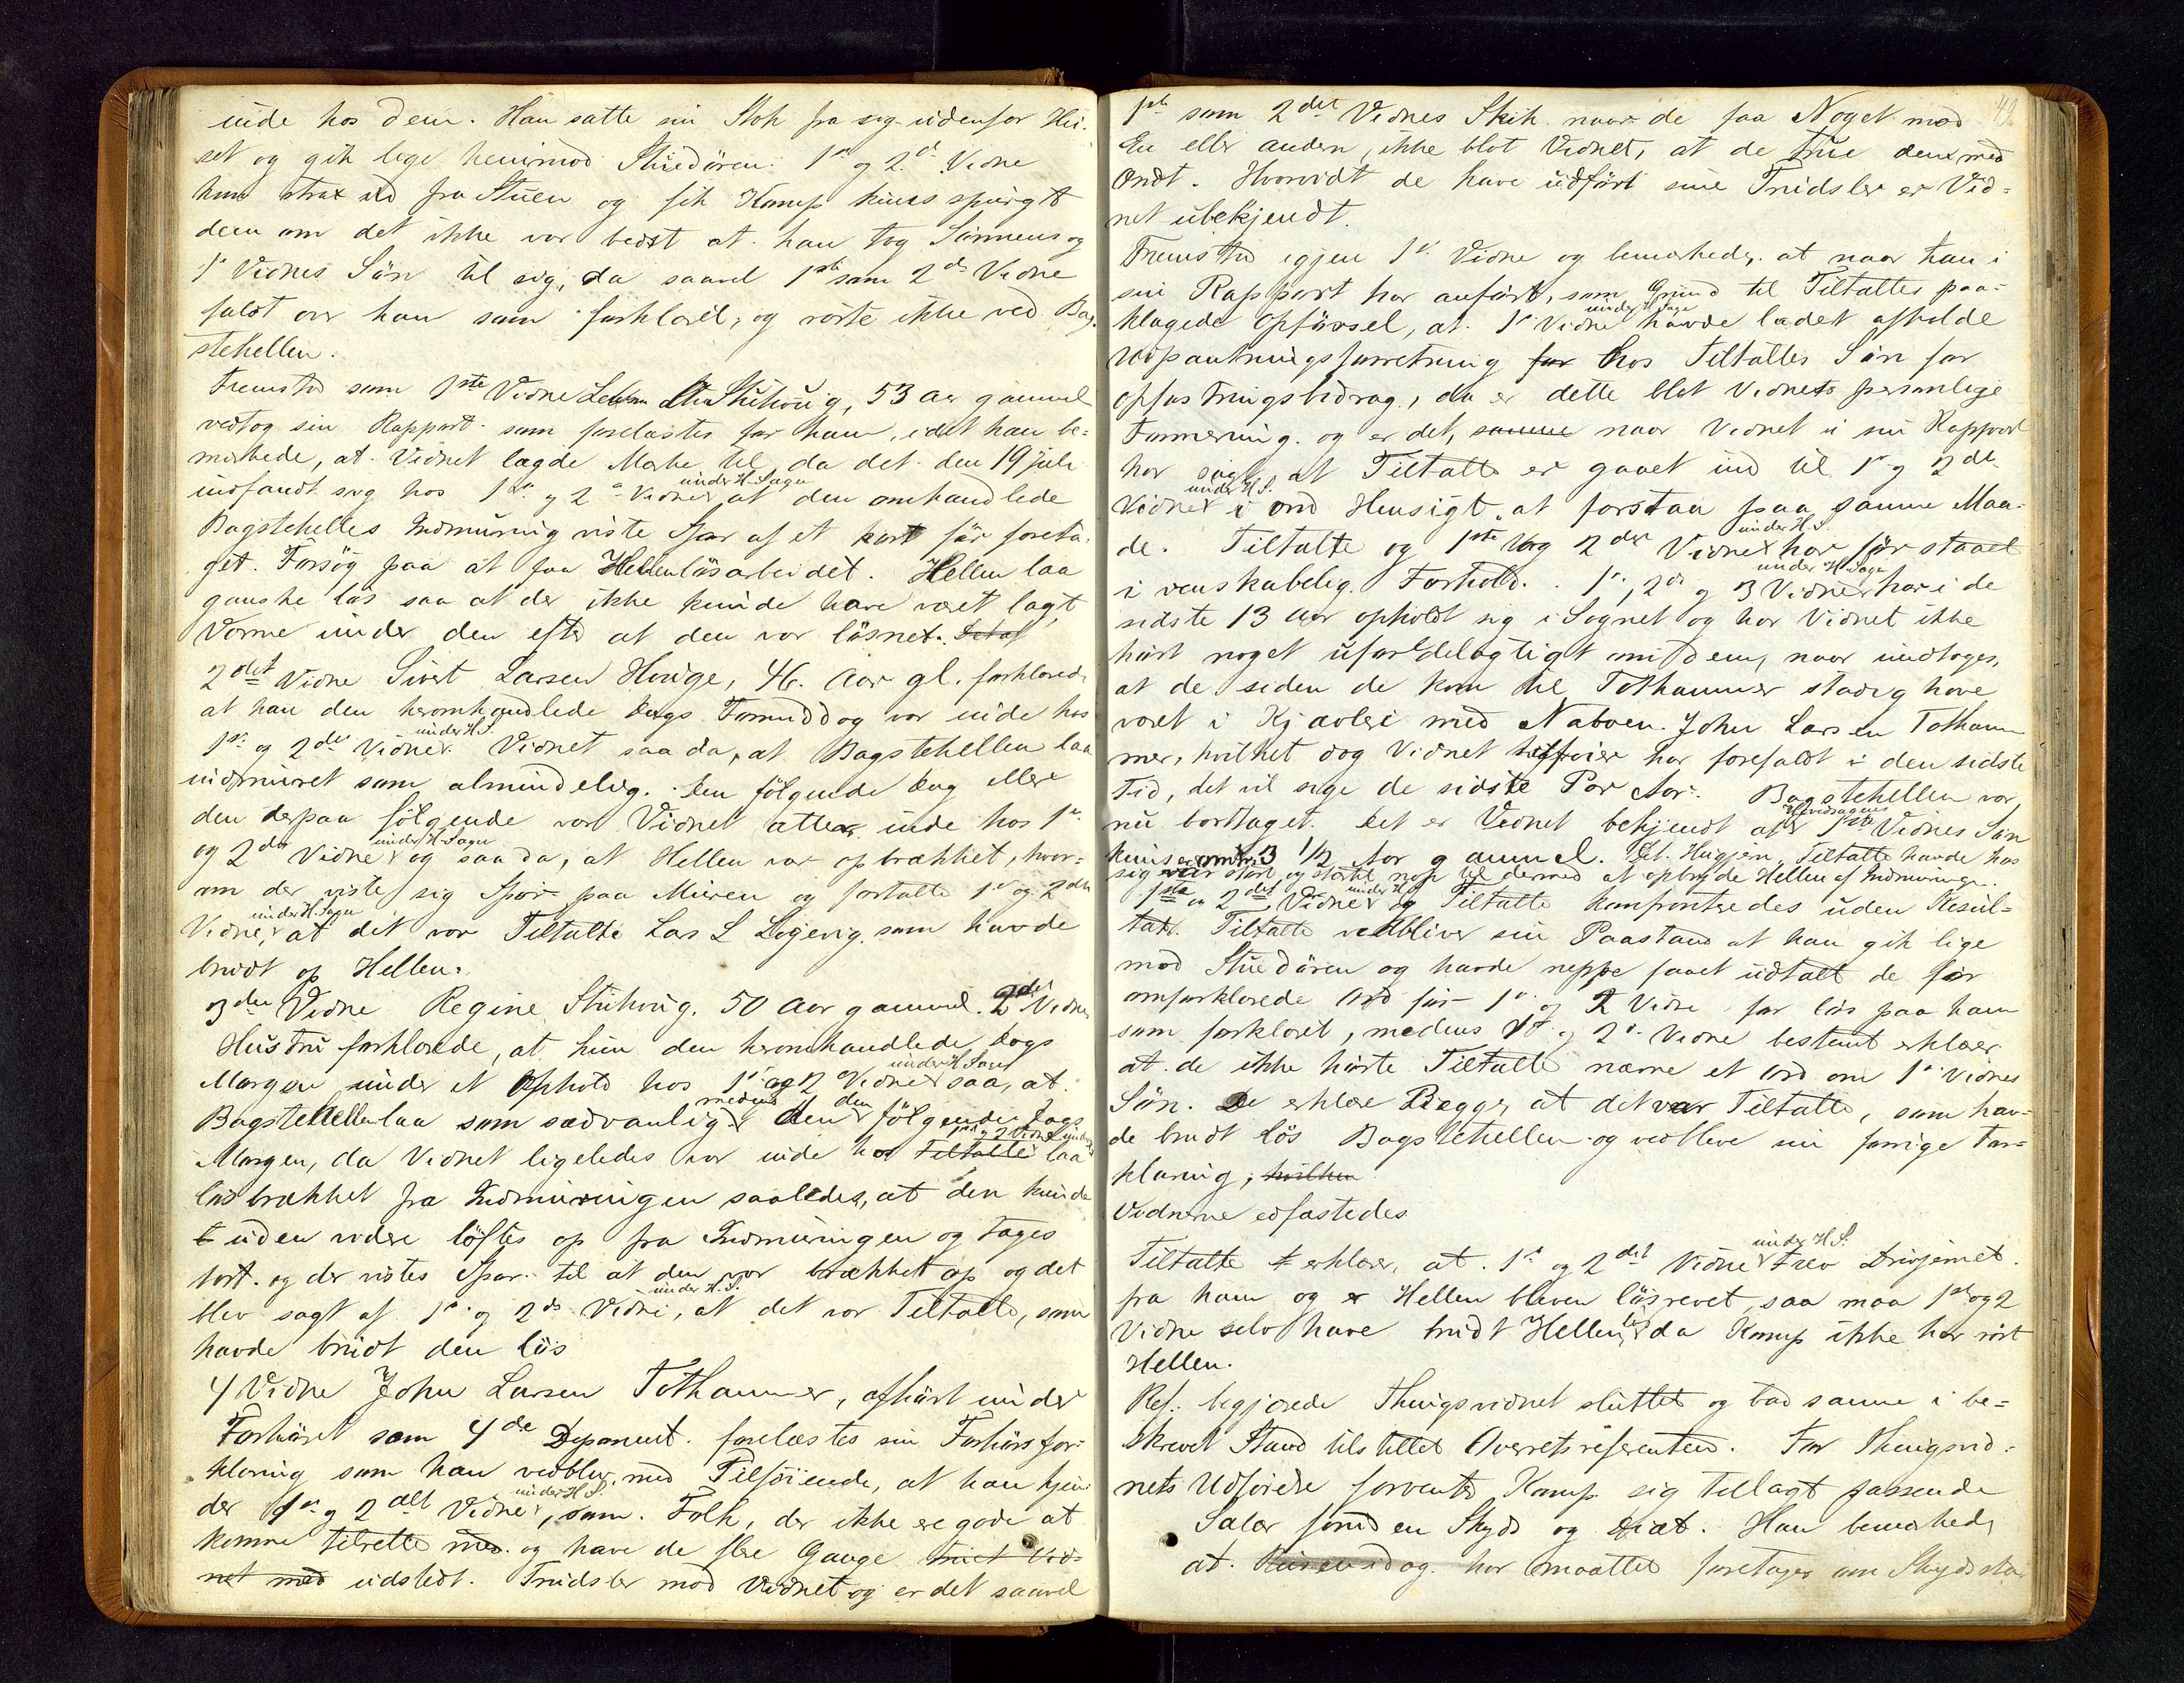 inde hos dem. Han satte sin Stok fra sig udenfor Hu-
set og gik lige henimod Stuedören. 1ste og 2det Vidne
kom strax ud fra Stuen og fik Komp kuns spurgt
dem om det ikke var bedst at han tog Sönnens og
1ste Vidnes Sön til sig, da saavel 1ste som 2det Vidne
faldt over ham som forklaret, og rörte ikke ved Bag-
stehellen.
Fremstod som 1ste Vidne Lensm Stuhoug, 53 aar gammel
vedtog sin Rapport som forelæstes for ham, idet han be-
mærkede, at Vidnet lagde Mærke til, da det den 19 juli
indfandt sig hos 1ste og 2det Vidne under H. Sagen at den omhandlede
Bagstehelles Indmuring viste Spor af et kort för foreta-
get Forsög paa at faa Hellen lösarbeidet. Hellen laa
ganske lös saa at der ikke kunde have været lagt
Varme under den efter at den var lösnet. Det af
2det Vidne Sivert Larsen Houge, 46 Aar gl. forklarede
at han den heromhandlede Dags Formiddag var inde hos
1ste og 2det Vidne under H. S. Vidnet saa da, at Bagstehellen laa
indmuret som almindelig. Den fölgende Dag eller
den derpaa fölgende var Vidnet atter inde hos 1ste
og 2det Vidne under H. Sagen og saa da, at Hellen var opbrækket, hvor-
om der viste sig Spor paa Muren og fortalte 1ste og 2det
Vidne under H. Sagen, at det var Tiltalte Lars L Löjevig som havde
brudt op Hellen.
3die Vidne Regine Stuhoug. 50 Aar gammel. 2det Vidnes
Hustru forklarede, at hun den heromhandlede Dags
Morgen under et Ophold hos 1ste og 2 Vidne under H Sagen saa, at
Bagstehellen laa som sædvanlig medens den den fölgende Dags
Morgen, da Vidnet ligeledes var inde hos Tiltalte 1ste og 2 Vidne under laa
lösbrækket fra Indmuringen saaledes, at den kunde
t uden videre löftes op fra Indmuringen og tages
bort. og der vistes Spor til at den var brækket op og det
blev sagt af 1ste og 2det Vidne under H. S., at det var Tiltalte, som
havde brudt den lös
4 Vidne John Larsen Tothammer, afhört under
Forhöret som 4de Deponent. forelæstes sin Forhörsfor-
klaring som han vedblev med Tilföiende, at han kjen-
der 1ste og 2det Vidne under H S., som Folk, der ikke ere gode at
komme tilrette med og have de flere Gange truet Vid-
net med udstedt Trudsler mod Vidnet og er det saavel
49.
1ste som 2det Vidnes Skik naar de faa Noget mod
En eller anden, ikke blot Vidnet, at de true dem med
Ondt. Hvorvidt de have udfört sine Trudsler er Vid-
net ubekjendt.
Fremstod igjen 1ste Vidne og bemærkede, at naar han i
sin Rapport har anfört, som Grund til Tiltaltes paa-
klagede Opförsel, at 1ste Vidne under H. Sagen havde ladet afholde
Udpantningsforretning for hos Tiltaltes Sön for
opfostringsbidrag, da er dette blot Vidnets personlige
Formening. og er det, samme naar Vidnet i sin Rapport
har sagt, at Tiltalte er gaaet ind til 1ste og 2det
Vidne under H S. i ond Hensigt at forstaa paa samme Maa-
de. Tiltalte og 1ste og 2det Vidne under H. S. har för staaet
i venskabelig Forhold. 1ste, 2det og 3 Vidne under H. Sagen har i de
sidste 13 Aar opholdt sig i Sognet og har Vidnet ikke
hört noget ufordelagtigt om dem, naar undtages,
at de siden de kom til Tothammer stadig have
været i Kjævleri med Naboen John Larsen Totham-
mer, hvilket dog Vidnet tilföier har forefaldt i den sidste
Tid, det vil sige de sidste Par Aar. Bagstehellen var
nu borttaget. Det er Vidnet bekjendt at 1ste Vidnes Sön
kuns er omtr. 3 1/2 Aar gammel. Det Huggjern, Tiltalte havde hos
sig var stort og stærkt nok til dermed at opbryde Hellen af Indmuringen.
1ste og 2det Vidne under H S og Tiltalte konfronteredes uden Resul-
tat. Tiltalte vedbliver sin Paastand at han gik lige
mod Stuedören og havde neppe faaet udtalt de för
omforklarede Ord för 1ste og 2 Vidne for lös paa ham
som forklaret, medens 1ste og 2det Vidne bestemt erklærer
at de ikke hörte Tiltalte nævne et Ord om 1ste Vidnes
Sön. De erklære Begge, at det var Tiltalte, som hav-
de brudt lös Bagstehellen og vedbleve sin forrige For-
klaring, hvilken
Vidnerne edfæstedes
Tiltalte erklærer, at 1ste og 2det Vidne under H S. rev Drivjernet
fra ham og er Hellen bleven lösrevet, saa maa 1ste og 2
Vidne selv have brudt Hellen lös da Komp ikke har rört
Hellen.
Ref. begjærede Thingsvidnet sluttet og bad samme i be-
skrevet Stand tilstillet Overretsreferenten. For Thingsvid-
nets Udförelse forventer Komp sig tillagt passende
Salær foruden Skyds og Diæt. Han bemærkede
at Reisen idag har maattet foretages om Skydssta-